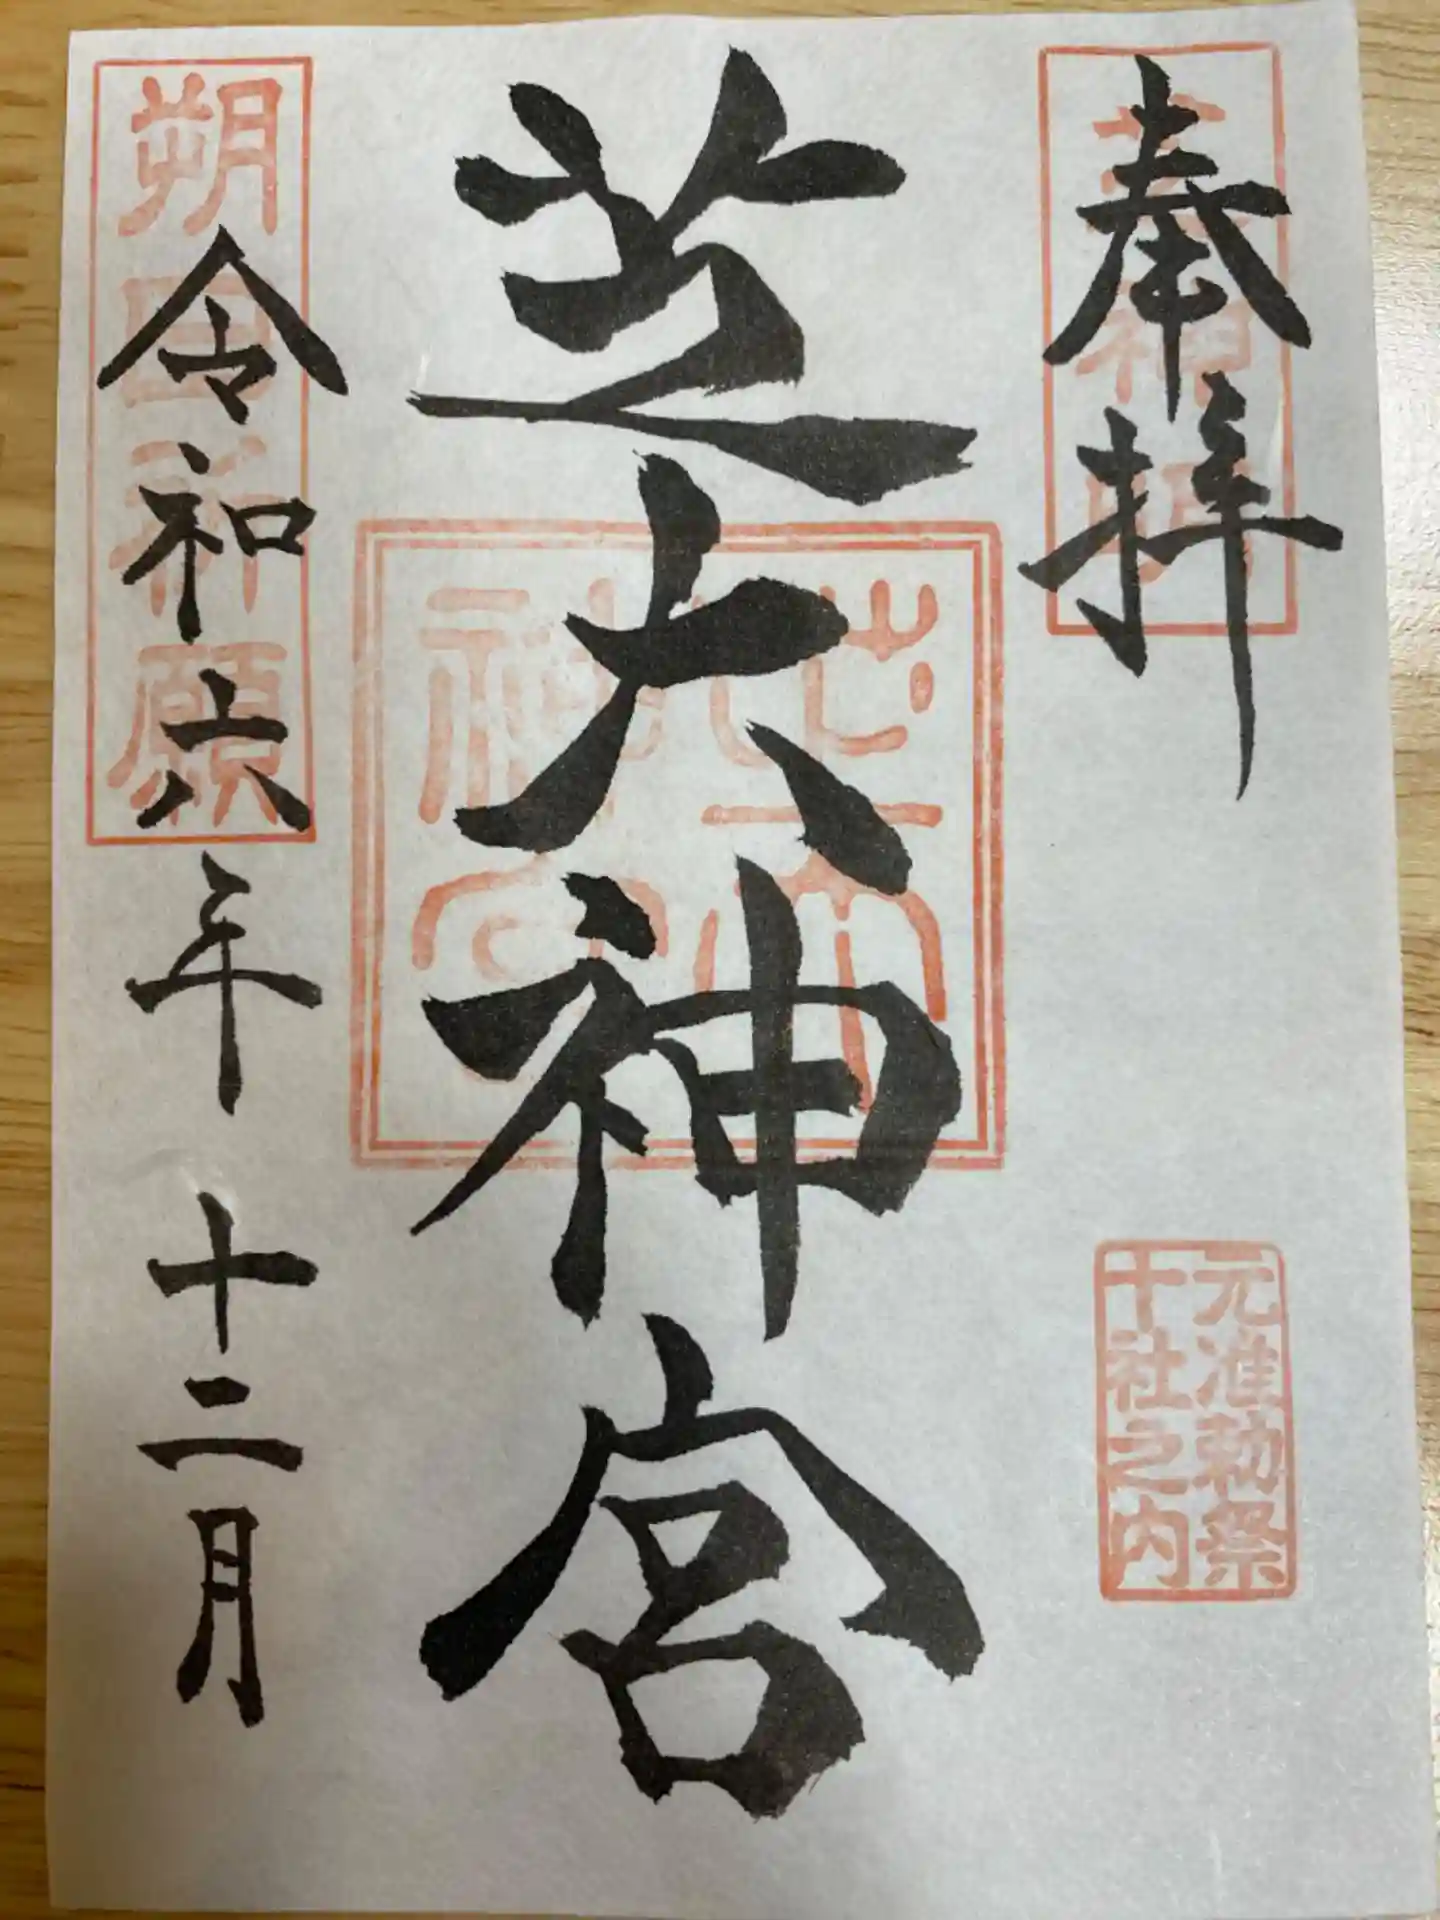 奉拝
元准勅祭
十社之内
芝大神宮
朔日祈願
令和六年十二月